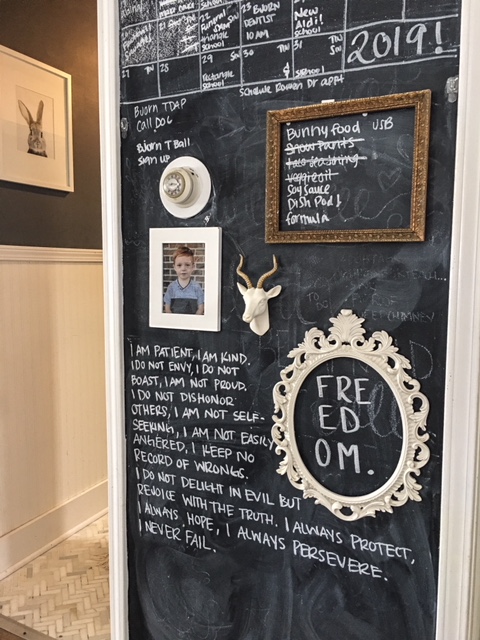 2019!
BJORN
DENTIST
10 AM
New
Aldi!
school
27 TN
28
29 SN
Rectangle
school
30 TN
31 TN
SN
school
Schedule Roman Dr appt
Bjorn TDAP
Call DOC
Bjorn T Ball
Sign up
Bunny food USB
Snow pants
taco seasoning
veggie oil
Soy sauce
Dish Pods
formula
I AM PATIENT, I AM KIND.
I DO NOT ENVY, I DO NOT
BOAST, I AM NOT PROUD.
I DO NOT DISHONOR
OTHERS, I AM NOT SELF-
SEEKING, I AM NOT EASILY
ANGERED, I KEEP NO
RECORD OF WRONGS.
I DO NOT DELIGHT IN EVIL BUT
REJOICE WITH THE TRUTH. I ALWAYS PROTECT,
I ALWAYS HOPE, I ALWAYS PERSEVERE.
I NEVER FAIL.
FRE
ED
OM.